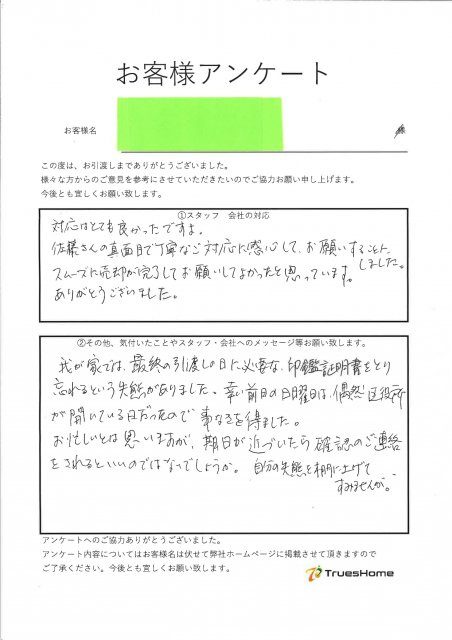 お客様アンケート
お客様名
様
この度は、お引渡しまでありがとうございました。
様々な方からのご意見を参考にさせていただきたいのでご協力お願い申し上げます。
今後とも宜しくお願い致します。
①スタッフ 会社の対応
対応はとても良かったですよ。
佐藤さんの真面目で丁寧なご対応に感心して、お願いすることに
しました。
スムーズに売却が完了してお願いしてよかったと思っています。
ありがとうございました。
②その他、気付いたことやスタッフ・会社へのメッセージ等お願い致します。
我が家では、最終の引渡しの日に必要な、印鑑証明書をとり
忘れるという失態がありました。幸い前日の日曜日は、偶然区役所
が開いている日だったので事なきを得ました。
お忙しいとは思いますが、期日が近づいたら確認のご連絡
をされるといいのではないでしょうか。自分の失態を棚に上げて
すみませんが。
アンケートへのご協力ありがとうございました。
アンケート内容についてはお客様名は伏せて弊社ホームページに掲載させて頂きますので
ご了承ください。今後とも宜しくお願い致します。
TruesHome